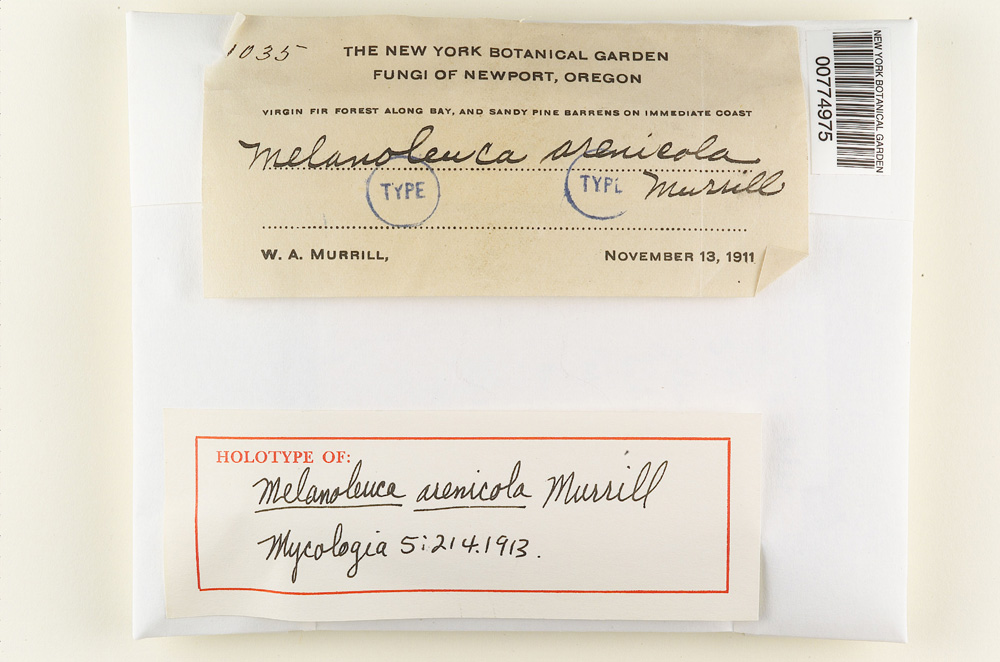 1035
THE NEW YORK BOTANICAL GARDEN
FUNGI OF NEWPORT, OREGON
VIRGIN FIR FOREST ALONG BAY, AND SANDY PINE BARRENS ON IMMEDIATE COAST
Melanoleuca arenicola
TYPE TYPE Murrill
W. A. MURRILL, NOVEMBER 13, 1911
NEW YORK BOTANICAL GARDEN
00774975
HOLOTYPE OF:
Melanoleuca arenicola Murrill
Mycologia 5:214.1913.